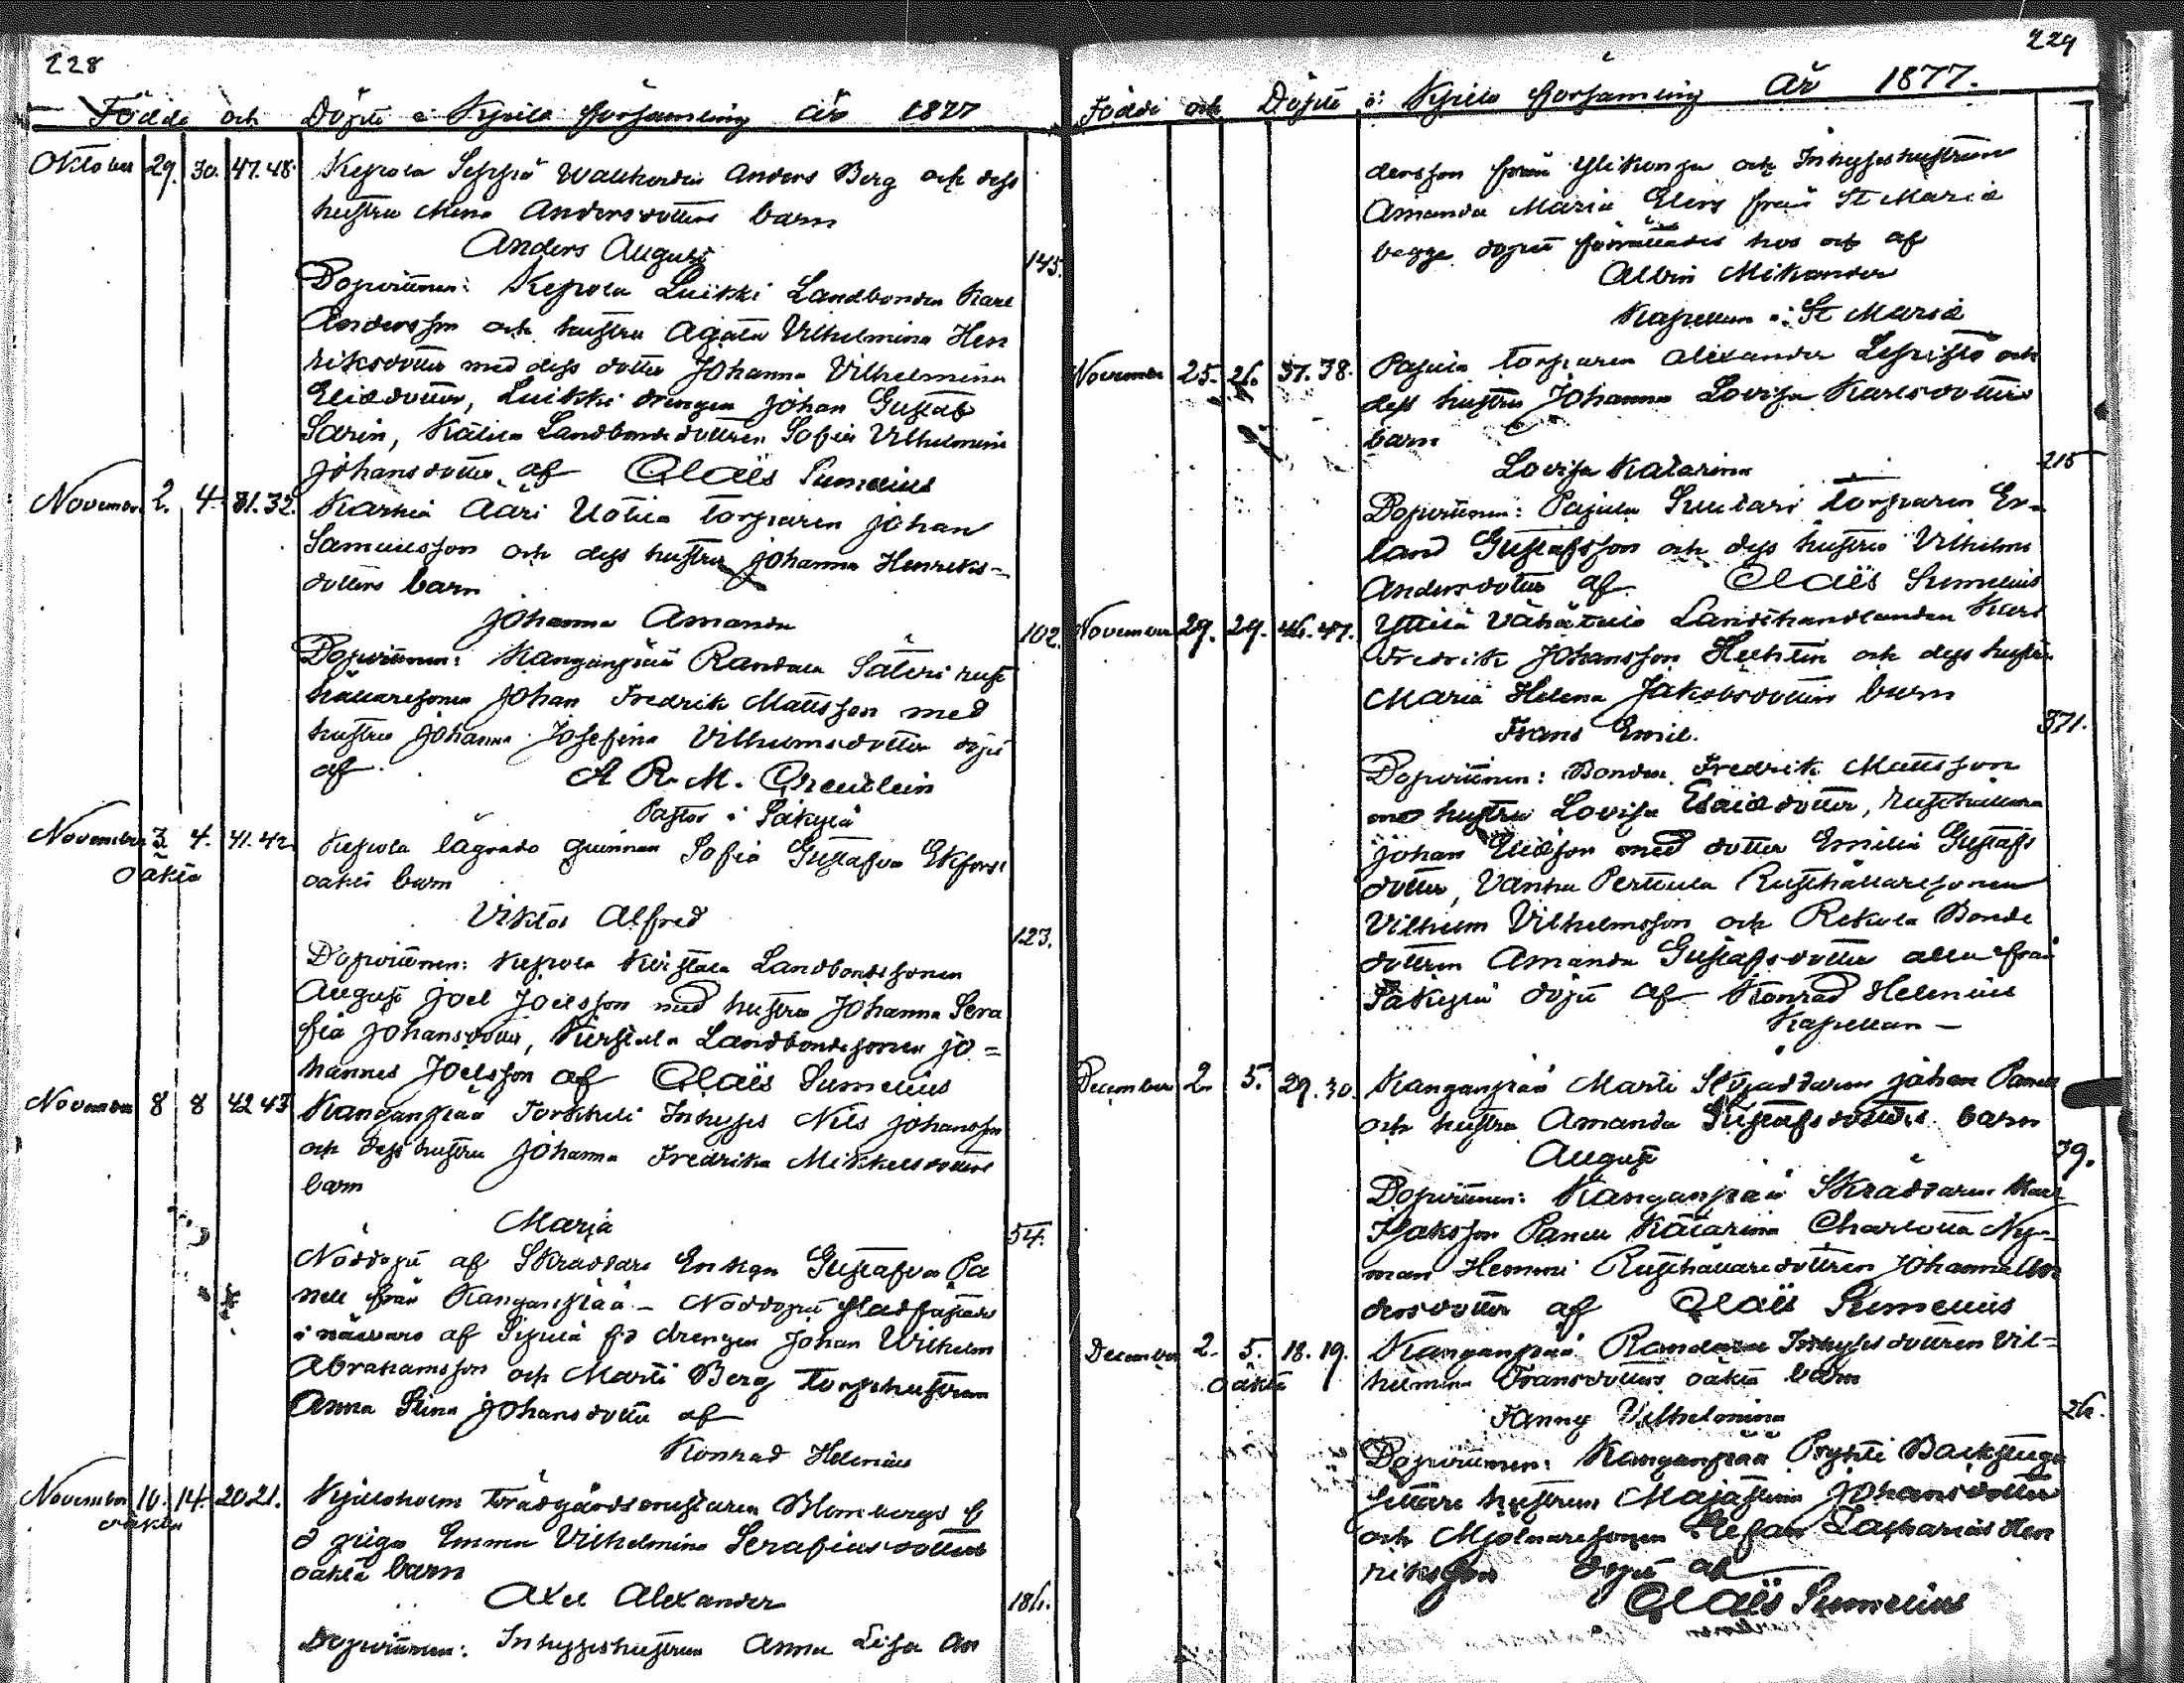 228
Födde och Döpte i Kjulo församling år 1877
Oktober 29. 30. 47.48. Kepola Seppä Vallherden Anders Berg och dess
hustru Mina Andersdotters barn
Anders August
145.
Dopvittnen: Kepola Luikki Landbonden Karl
Andersson och hustru Agata Vilhelmina Hen
riksdotter med dess dotter Johanna Vilhelmina
Eliædotter, Luikki drengen Johan Gustaf
Sarin, Katila Landbondedottren Sofia Vilhelmina
Johansdotter af Claës Sumelius
November 2. 4. 31.32. Karhia Ääri Uotila torparen Johan
Samuelsson och dess hustru Johanna Henriks=
dotters barn
Johanna Amanda
102.
Dopvittnen: Kanganpää Randala Säteri rust
hållaresonen Johan Fredrik Mattsson med
hustru Johanna Josefina Vilhelmsdotter döpt
af A R. M.
Pastor i Säkylä
November 3 4. 41.42. Kepola lägrade qvinnan Sofia Gustafva Ekfors
oäkta
oäkta barn
Viktor Alfred
123.
Dopvittnen: Kepola Landbondesonen
August Joel Joelsson med hustru Johanna Sera
fia Johansdotter, Landbondesonen Jo=
hannes Joelsson af Claës Sumelius
November 8 8 42 43 Kanganpää Torkkeli Inhyses Nils Johansson
och dess hustru Johanna Fredrika Mikkelsdotters
barn
Maria
54.
Nöddöpt af Skräddare Enkan Gustafva Pa
nell från Kanganpää – Nöddopet stadfästades
i närvaro af drengen Johan Wilhelm
Abrahamsson och Martti Berg Torpshustrun
Anna Stina Johansdotter af
Konrad Helenius
November 10. 14. 20.21. Kjuloholm Trädgårdsmästaren Blombergs f
oäkta
d piga Emma Vilhelmina Serafiasdotters
oäkta barn
Axel Alexander
186.
Dopvittnen: Inhyseshustrun Anna Lisa An
229
Födde och Döpte i Kjulo församling År 1877.
dersson från Ylikonsa och Inhyseshustrun
Amanda Maria Elers från St Mariæ
begge dopet förrättades hos och af
Albin Mikander
Kapellan i St Mariæ
November 25. 26. 37.38. Pajula torparen Alexander och
dess hustru Johanna Lovisa Karlsdotters
barn
Lovisa Katarina
215
Dopvittnen: Pajula Suutari torparen Er=
land Gustafsson och dess hustru Vilhelmi
Andersdotter af Claës Sumelius
November 29. 29. 46.47. Vähätalo Landthandlanden Karl
Fredrik Johansson Huhtin och dess hustru
Maria Helena Jakobsdotters barn
Frans Emil.
371.
Dopvittnen: Bonden Fredrik Mattsson
med hustru Lovisa Esaiædotter, rusthållare
Johan Eliasson med dotter Emilia Gustafs
dotter, Vanha Perttula Rusthållaresonen
Vilhelm Vilhelmsson och Rekola Bonde
dottren Amanda Gustafsdotter alla från
Säkylä döpt af Konrad Helenius
Kapellan –
December 2. 5. 29.30. Kanganpää Martti Skräddaren Johan Panell
och hustru Amanda Gustafsdotters barn
August
39.
Dopvittnen: Kanganpää Skräddaren Karl
Isaksson Panell Katarina Charlotta Ny=
man Hemmi Rusthållaredottren Johanna An
dersdotter af Claës Sumelius
December 2. 5. 18.19. Kanganpää Randala Inhysesdottren Vil=
oäkta
helmina Fransdotters oäkta barn
Fanny Vilhelmina
26.
Dopvittnen: Kanganpää Backstugu
sittare hustrun Majastina Johansdotter
och Mjölnaresonen Stefan Zacharias Hen
riksson döpt af
Claës Sumelius